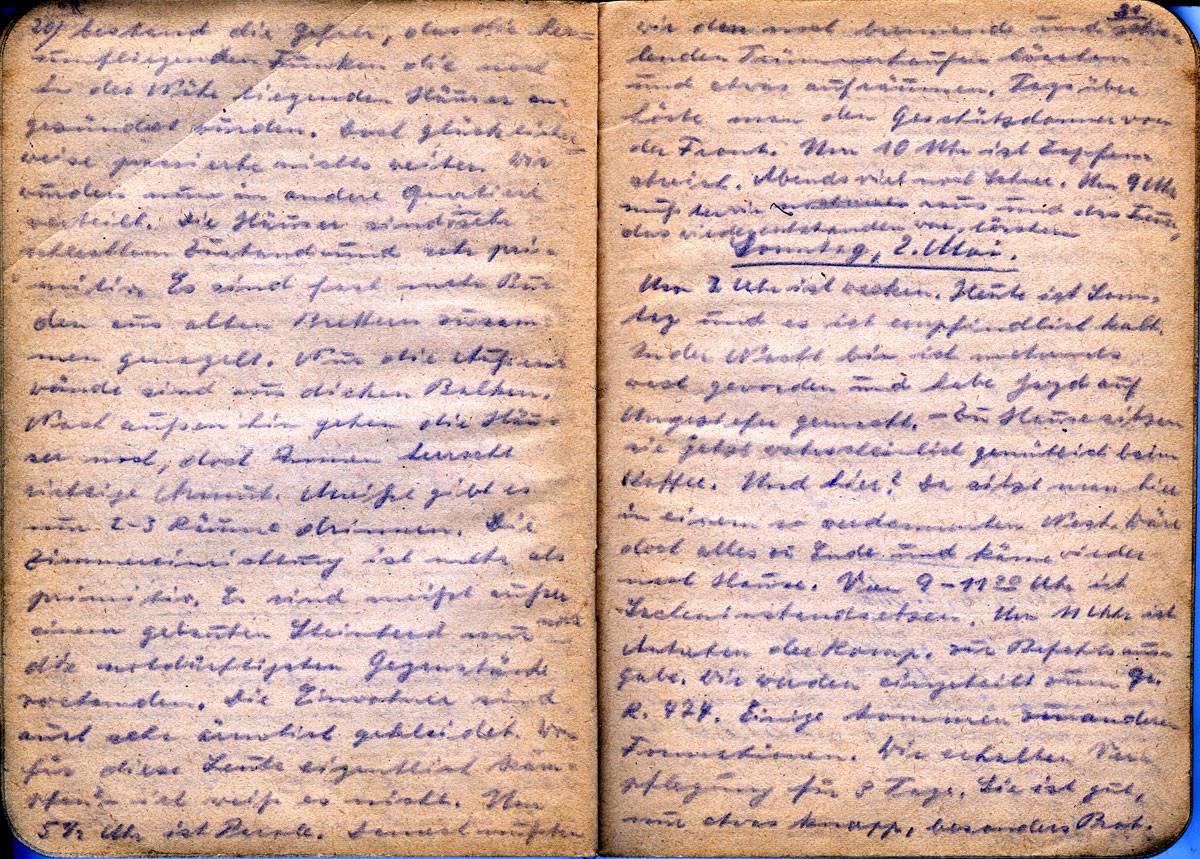 20) bestand die Gefahr, das die her-
umfliegenden Funken die noch
in der Nähe liegenden Häuser an-
gezündet würden. Doch glücklicher-
weise passierte nichts weiter. Wir
wurden nun in andere Quartiere
verteilt. Die Häuser sind
schlechtem Zustand und sehr pri-
mitiv. Es sind fast mehr Bu-
den aus alten Brettern zusam-
men genagelt. Nur die Außen
wände sind aus dicken Balken.
Nach außen hin gehen die Häu-
ser noch, doch innen herrscht
richtige Armut. Meißt gibt es
nur 2-3 Räume drinnen. Die
Zimmereinrichtung ist mehr als
primitiv. Es sind meißt außer
einem gebauten Steinherd nur
die notdürftigsten Gegenstände
vorhanden. Die Einwohner sind
auch sehr ärmlich gekleidet. Wo-
für diese Leute eigentlich käm-
pfen ich weiß es nicht. Um
5½ Uhr ist Parole. Danach mußten
31
wir den noch brennende und schwe-
lenden Trümmerhaufen löschen
und etwas aufräumen. Tags über
hörte man den Geschützdonner von
der Front. Um 10 Uhr ist Zapfen
streich. Abends viel noch Schnee. Um 9 Uhr
mußten wir nochmals raus und das Feuer,
das wieder entstanden war, löschen
Sonntag, 2. Mai.
Um 7 Uhr ist wecken. Heute ist Sonn-
tag und es ist empfindlich kalt.
In der Nacht bin ich mehrmals
wach geworden und habe Jagd auf
Ungeziefer gemacht. - Zu Hause sitzen
sie jetzt wahrscheinlich gemütlich beim
Kaffee. Und hier? Da sitzt man hier
in einem so verdammten Nest. Wäre
doch alles zu Ende und käme wieder
nach Hause. Von 9-11²⁰ Uhr ist
Sacheninstandsetzen. Um 11 Uhr ist
Antreten der Komp. zur Befehlsaus
gabe. Wir werden eingeteilt zum Gr.
R. 424. Einige kommen zu anderen
Formationen. Wir erhalten Ver-
pflegung für 3 Tage. Sie ist gut,
nur etwas knapp, besonders Brot.